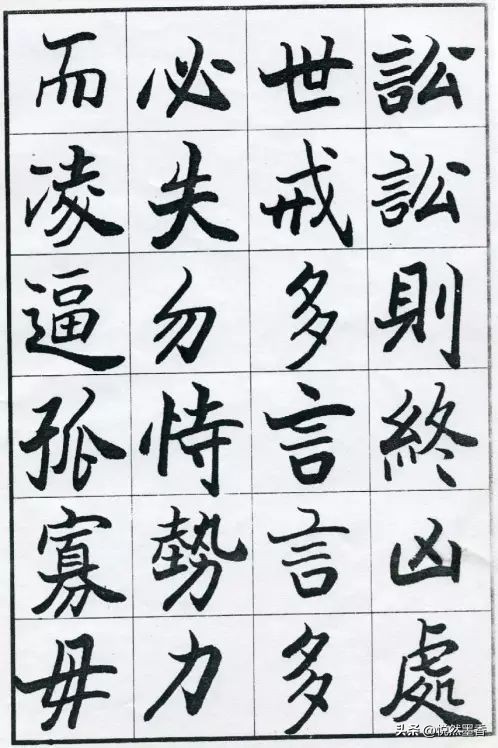 訟訟則終凶處
世戒多言言多
必失勿恃勢力
而凌逼孤寡毋
头条@悦然墨香